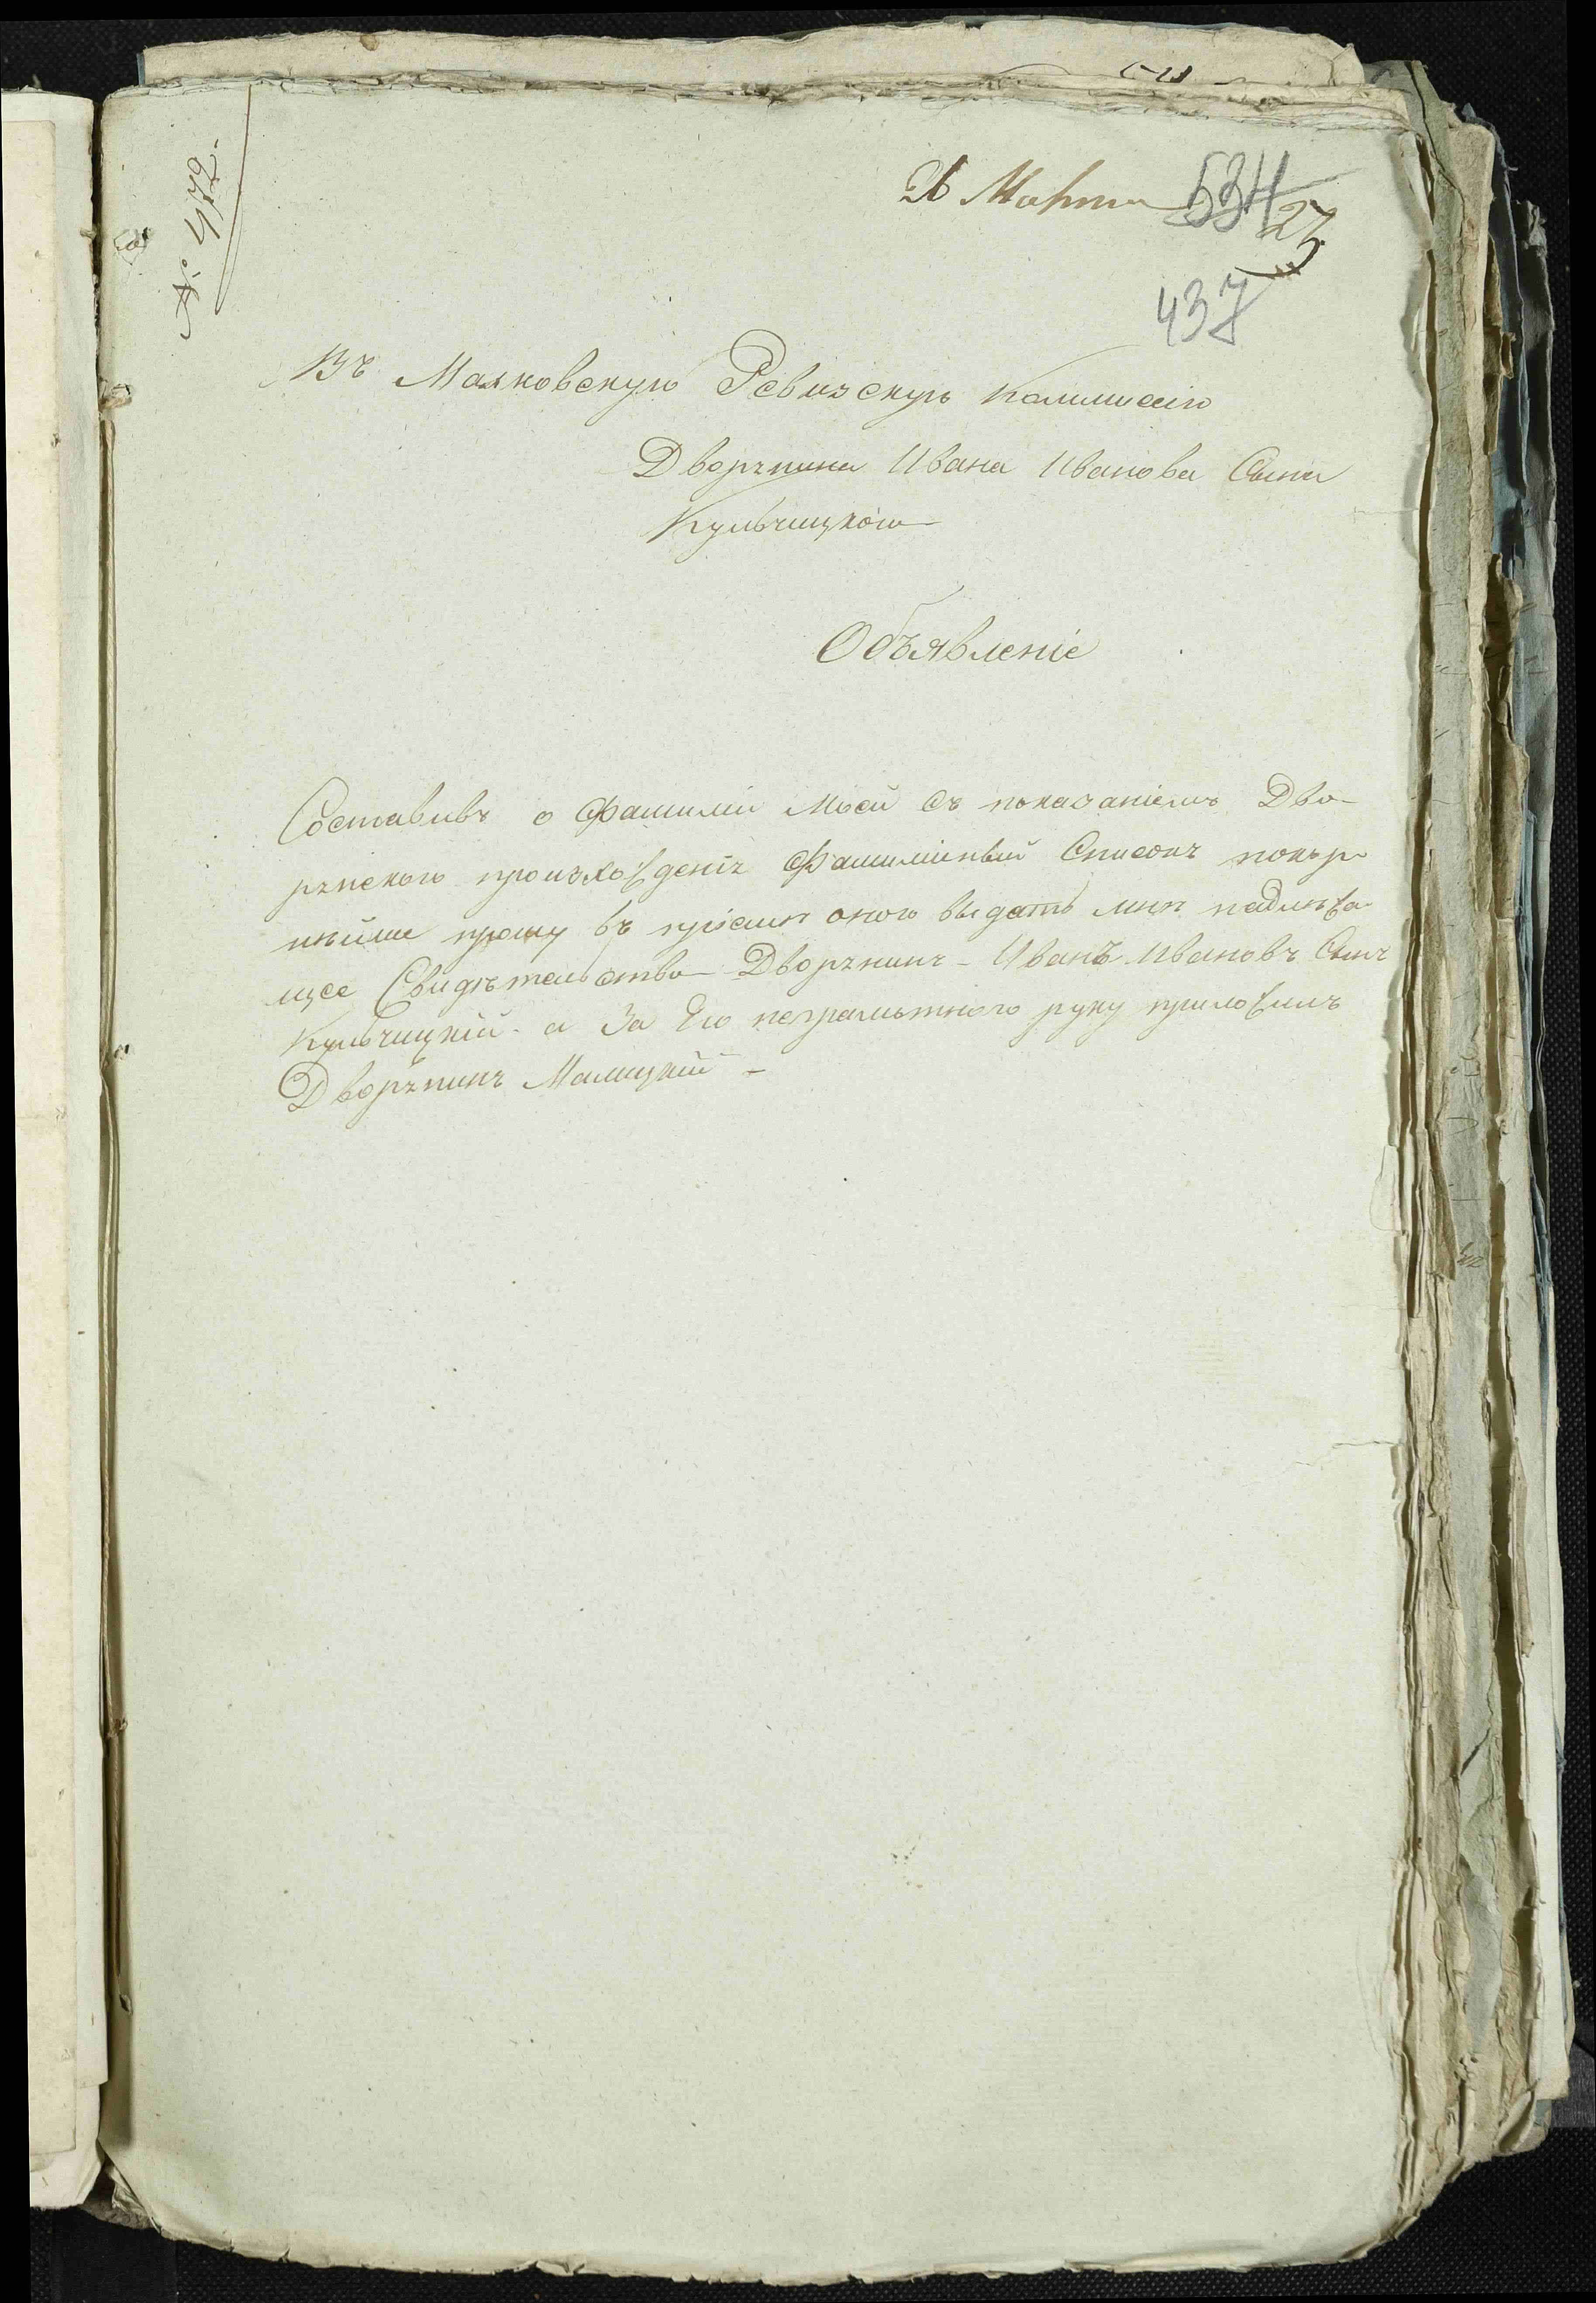 №: 472.
Марта
534
23
437
Въ Маяковскую Ревизскую Коммисію
Дворянина Ивана Иванова Сына
Кульчицкого
Объявленіе
Составивъ о Фамиліи Моей Съ показаніемъ Дво-
рянскаго произхожденія Фамилійный Списокъ покор
нѣйше прошу въ пріемѣ оного выдать мнѣ надлежа
щее Свидѣтельство Дворянинъ - Иванъ Ивановъ Сынъ
Кульчицкій. а За Его неграмотного руку приложилъ
Дворянинъ Малицкій -